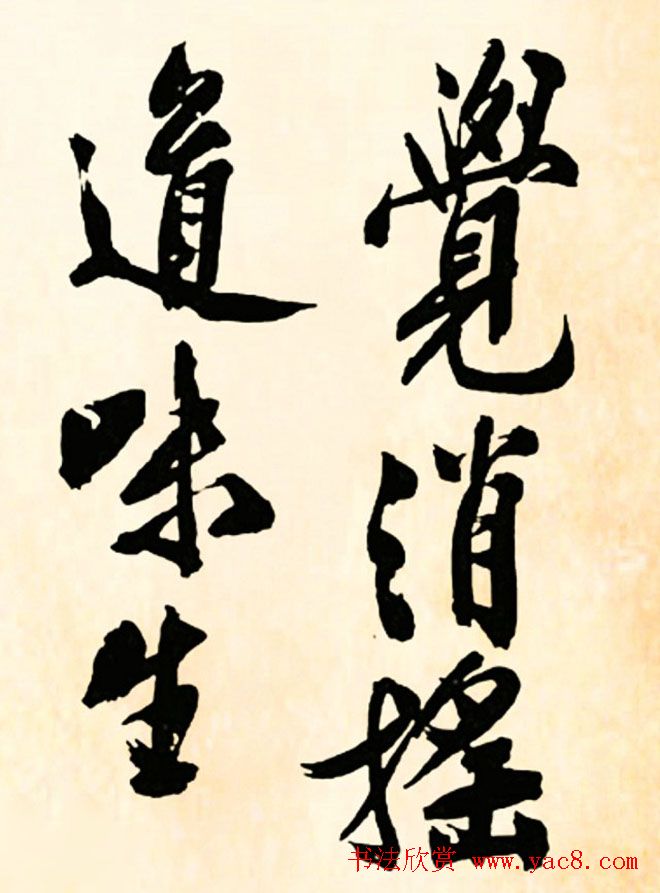 覺消搖
道味生
书法欣赏 www.yac8.com